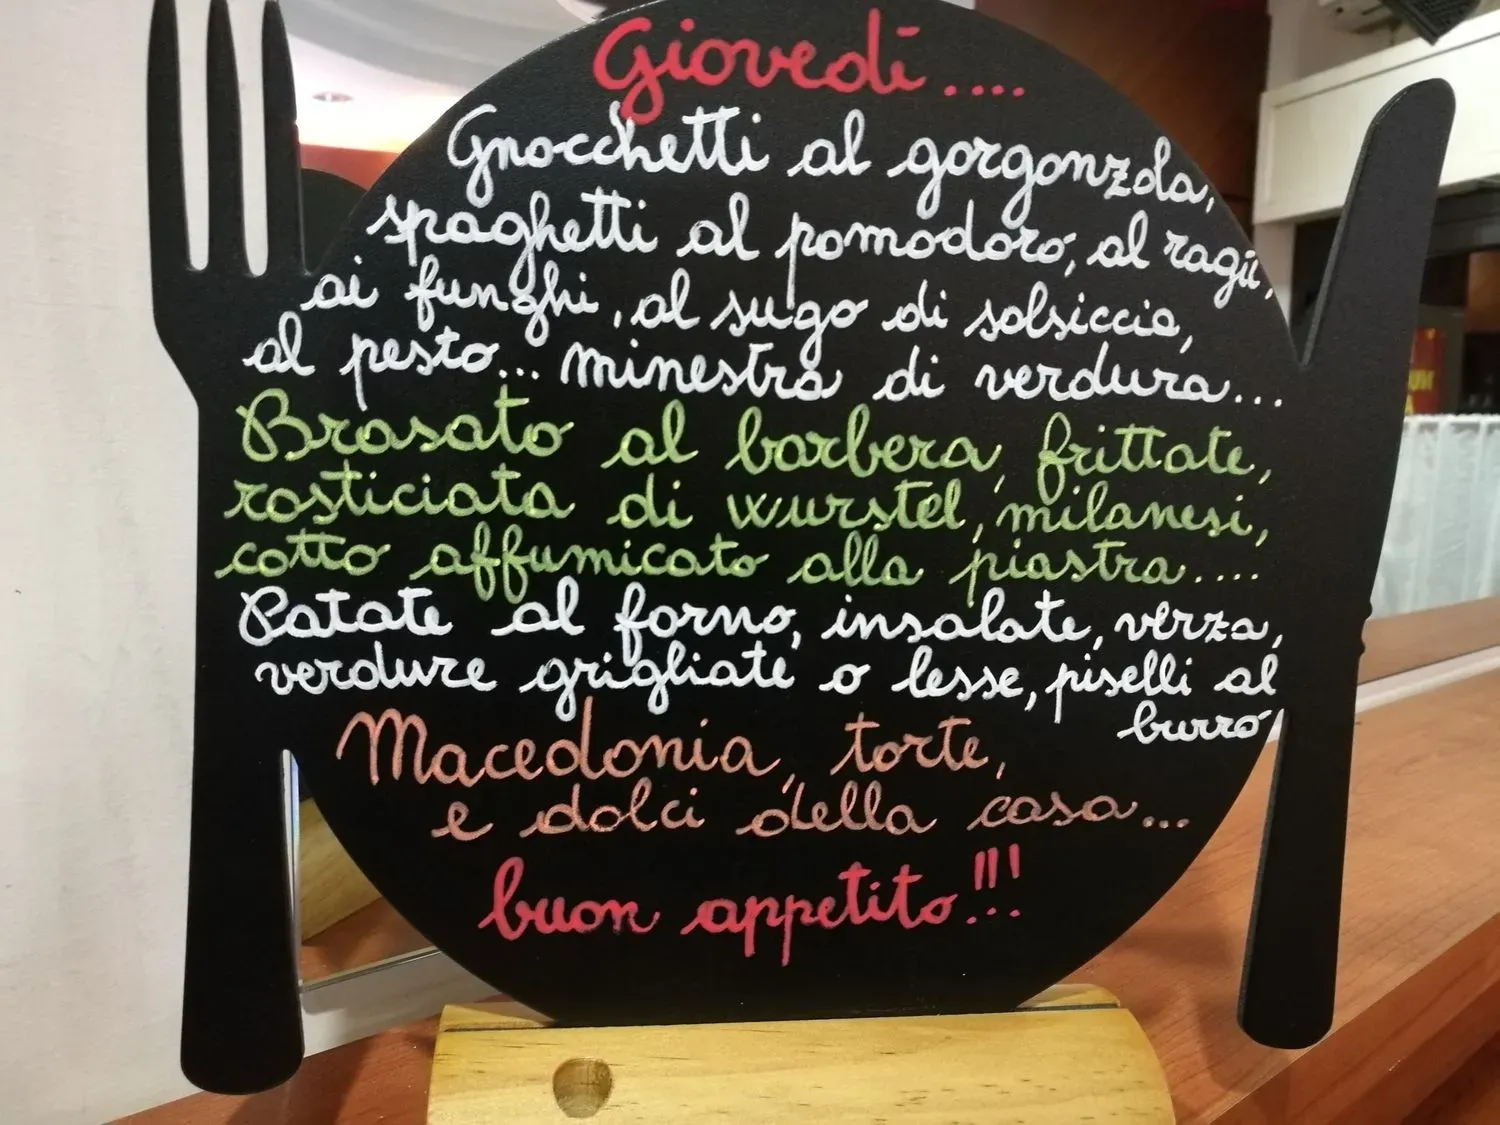 Giovedì....
Gnocchetti al gorgonzola,
spaghetti al pomodoro, al ragù,
ai funghi, al sugo di salsiccia,
al pesto... minestra di verdura...
Brasato al barbera, frittate,
rosticiata di wurstel, milanesi,
cotto affumicato alla piastra....
Patate al forno, insalate, verza,
verdure grigliate o lesse, piselli al
burro
Macedonia, torte,
e dolci della casa...
buon appetito!!!